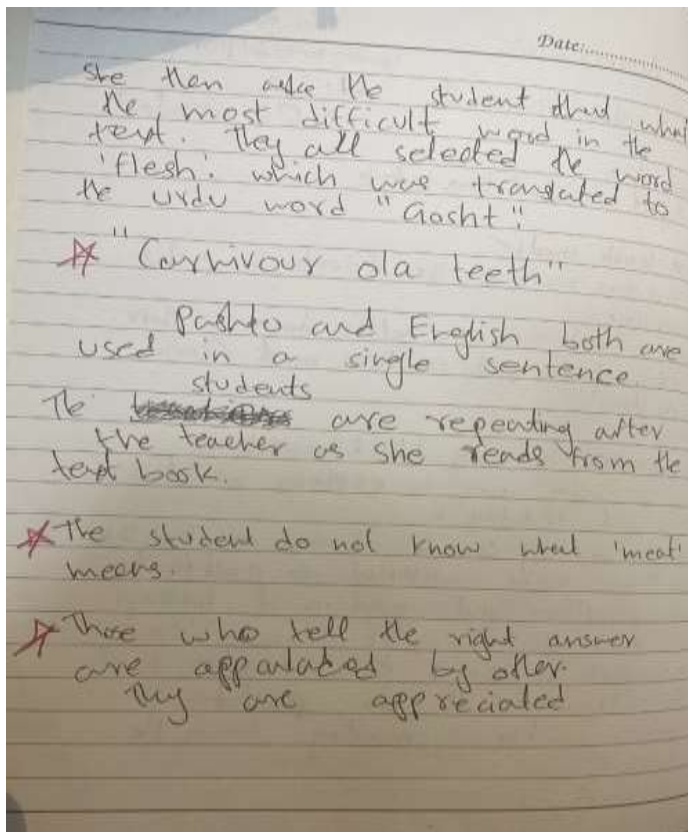 Date:..................
She then asks the student that what
the most difficult word in the
text. They all selected the word
'flesh'. which was translated to
the urdu word "Gosht".
"Carnivour ola teeth"
Pashto and English both are
used in a single sentence
students
The are repeating after
the teacher as she reads from the
text book.
The student do not know what 'meat'
means.
Those who tell the right answer
are by other.
They are appreciated